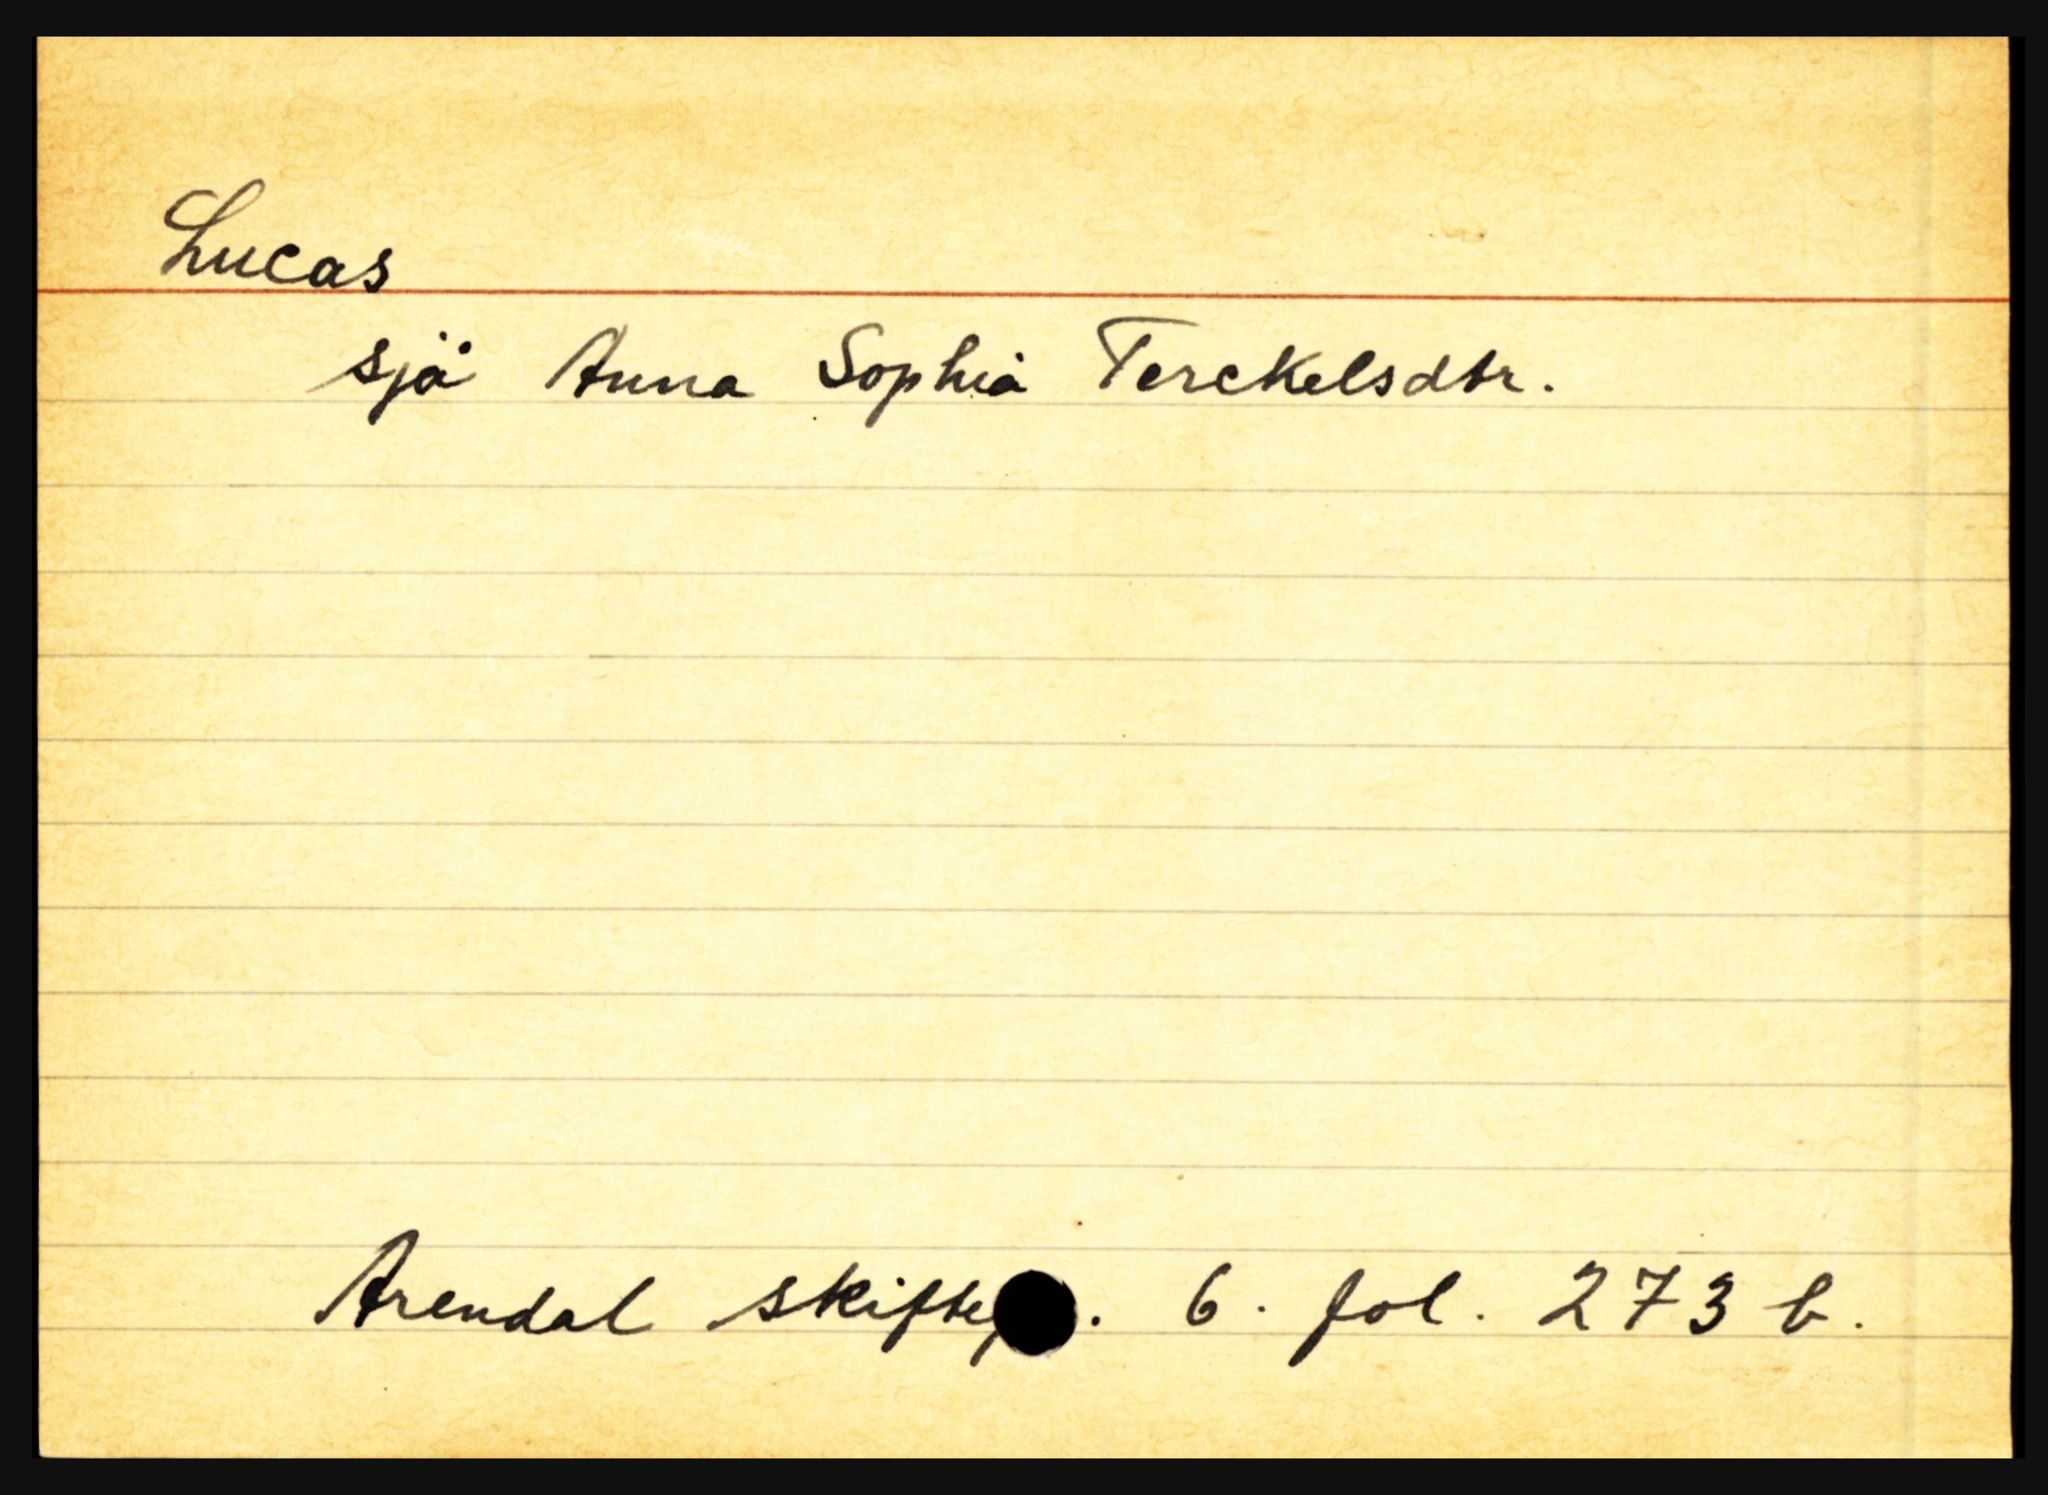 Lucas
sjå Anna Sophia Terckelsdtr.
Arendal 6. fol. 273 b.